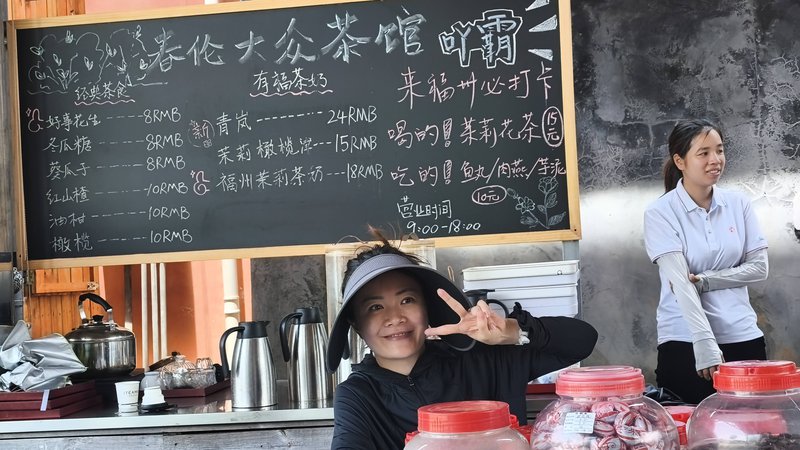 春伦大众茶馆
吖霸
经典茶食
好事花生------8RMB
冬瓜糖------8RMB
葵瓜子------8RMB
红山楂------10RMB
油柑------10RMB
橄榄------10RMB
有福茶奶
新 青岚------24RMB
茉莉橄榄冰------15RMB
福州茉莉茶奶---18RMB
来福州必打卡
喝的！茉莉花茶 15元
吃的！鱼丸/肉燕/芋泥
10元
营业时间
9:00-18:00